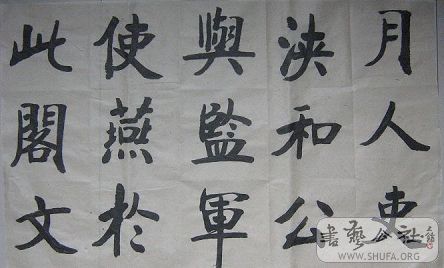 月人吏
浹和公
與監軍
使燕於
此閣文
書藝公社
WWW.SHUFA.ORG